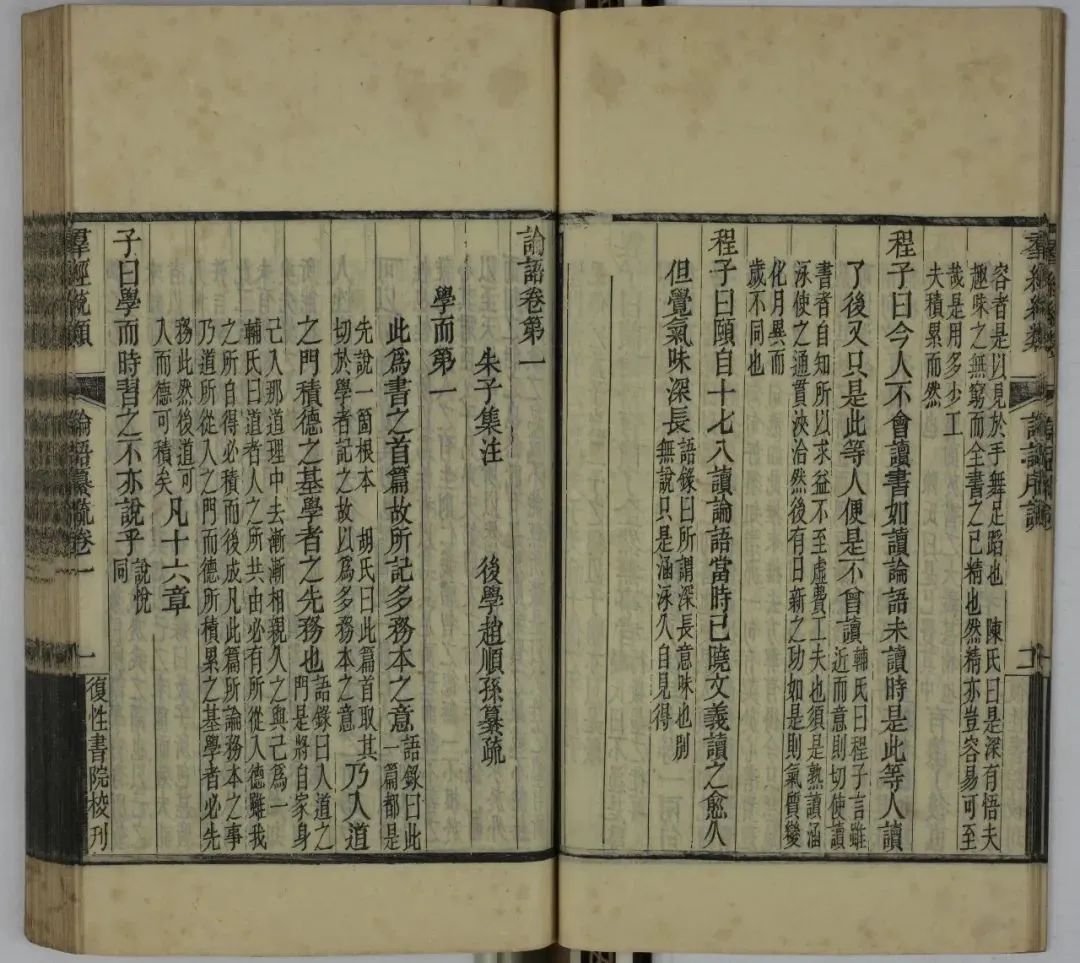 容者是以見於手舞足蹈也　陳氏曰是深有悟夫
趣味之無窮而全書之已精也然精亦豈容易可至
哉是用多少工
夫積累而然
程子曰今人不會讀書如讀論語未讀時是此等人讀
了後又只是此等人便是不曾讀輔氏曰程子言雖
近而意則切使讀
書者自知所以求益不至虛費工夫也須是熟讀涵
泳使之通貫浹洽然後有日新之功如是則氣質變
化月異而
歲不同也
程子曰頤自十七八讀論語當時已曉文義讀之愈久
但覺氣味深長語錄曰所謂深長意味也別
無說只是涵泳久自見得
論語卷第一
朱子集注　後學趙順孫纂疏
學而第一
此爲書之首篇故所記多務本之意語錄曰此
一篇都是
先說一箇根本　胡氏曰此篇首取其
切於學者記之故以爲多務本之意乃入道
之門積德之基學者之先務也語錄曰入道之
門是將自家身
己入那道理中去漸漸相親久之與己爲一
輔氏曰道者人之所共由必有所從入德雖我
之所自得必積而後成凡此篇所論務本之事
乃道所從入之門而德所積累之基學者必先
務此然後道可
入而德可積矣凡十六章
子曰學而時習之不亦說乎說悅
同
羣經統類　論語纂疏卷一　一　復性書院校刊